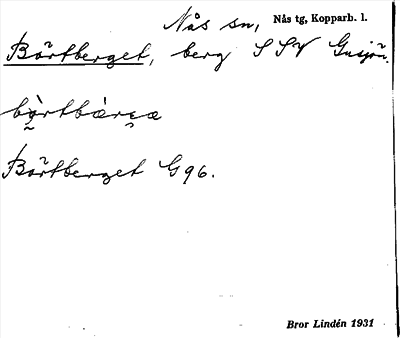 Nås sn, Nås tg, Kopparb. l.
Börtberget, berg SSV Gusjön.
Börtberget G96.
Bror Lindén 1931